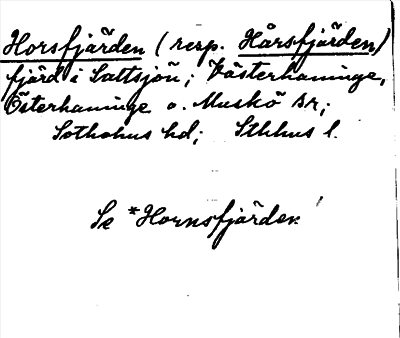 Horsfjärden (resp. Hårsfjärden)
fjärd i Saltsjön; Västerhaninge,
Österhaninge o. Muskö snr;
Sotholms hd; Sthlms l.
Se *Hornsfjärden